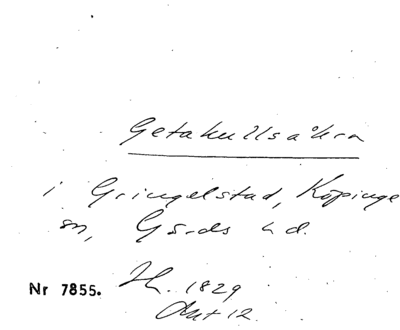 Getakullsåkra
i Gringelstad, Köpinge
sn, Gärds hd.
Nr 7855.
1829
Akt 12